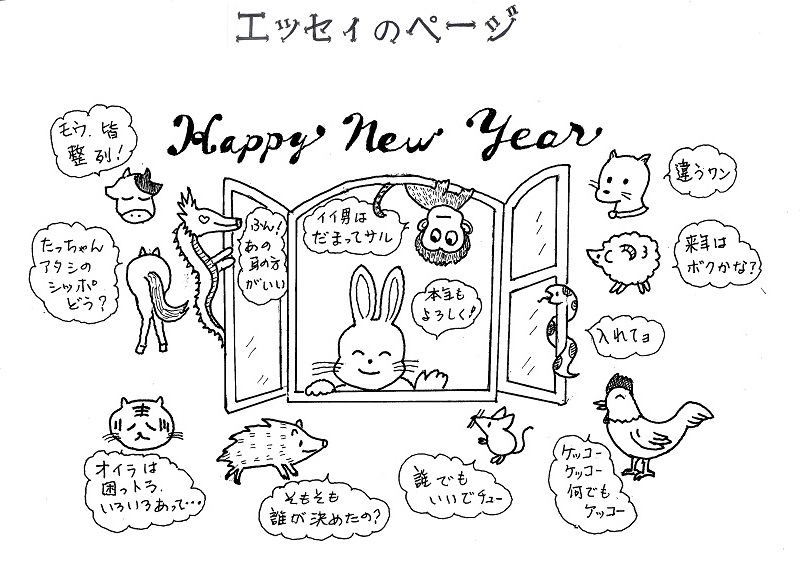 エッセイのページ
Happy New Year
モウ、皆
整列!
たっちゃん
アタシの
シッポ
どう?
ふん!
あの
耳の方
がいい
イイ男は
だまってサル
本年も
よろしく!
違うワン
来年は
ボクかな?
入れてョ
オイラは
困っトラ、
いろいろあって…
そもそも
誰が決めたの?
誰でも
いいでチュー
ケッコー
ケッコー
何でも
ケッコー